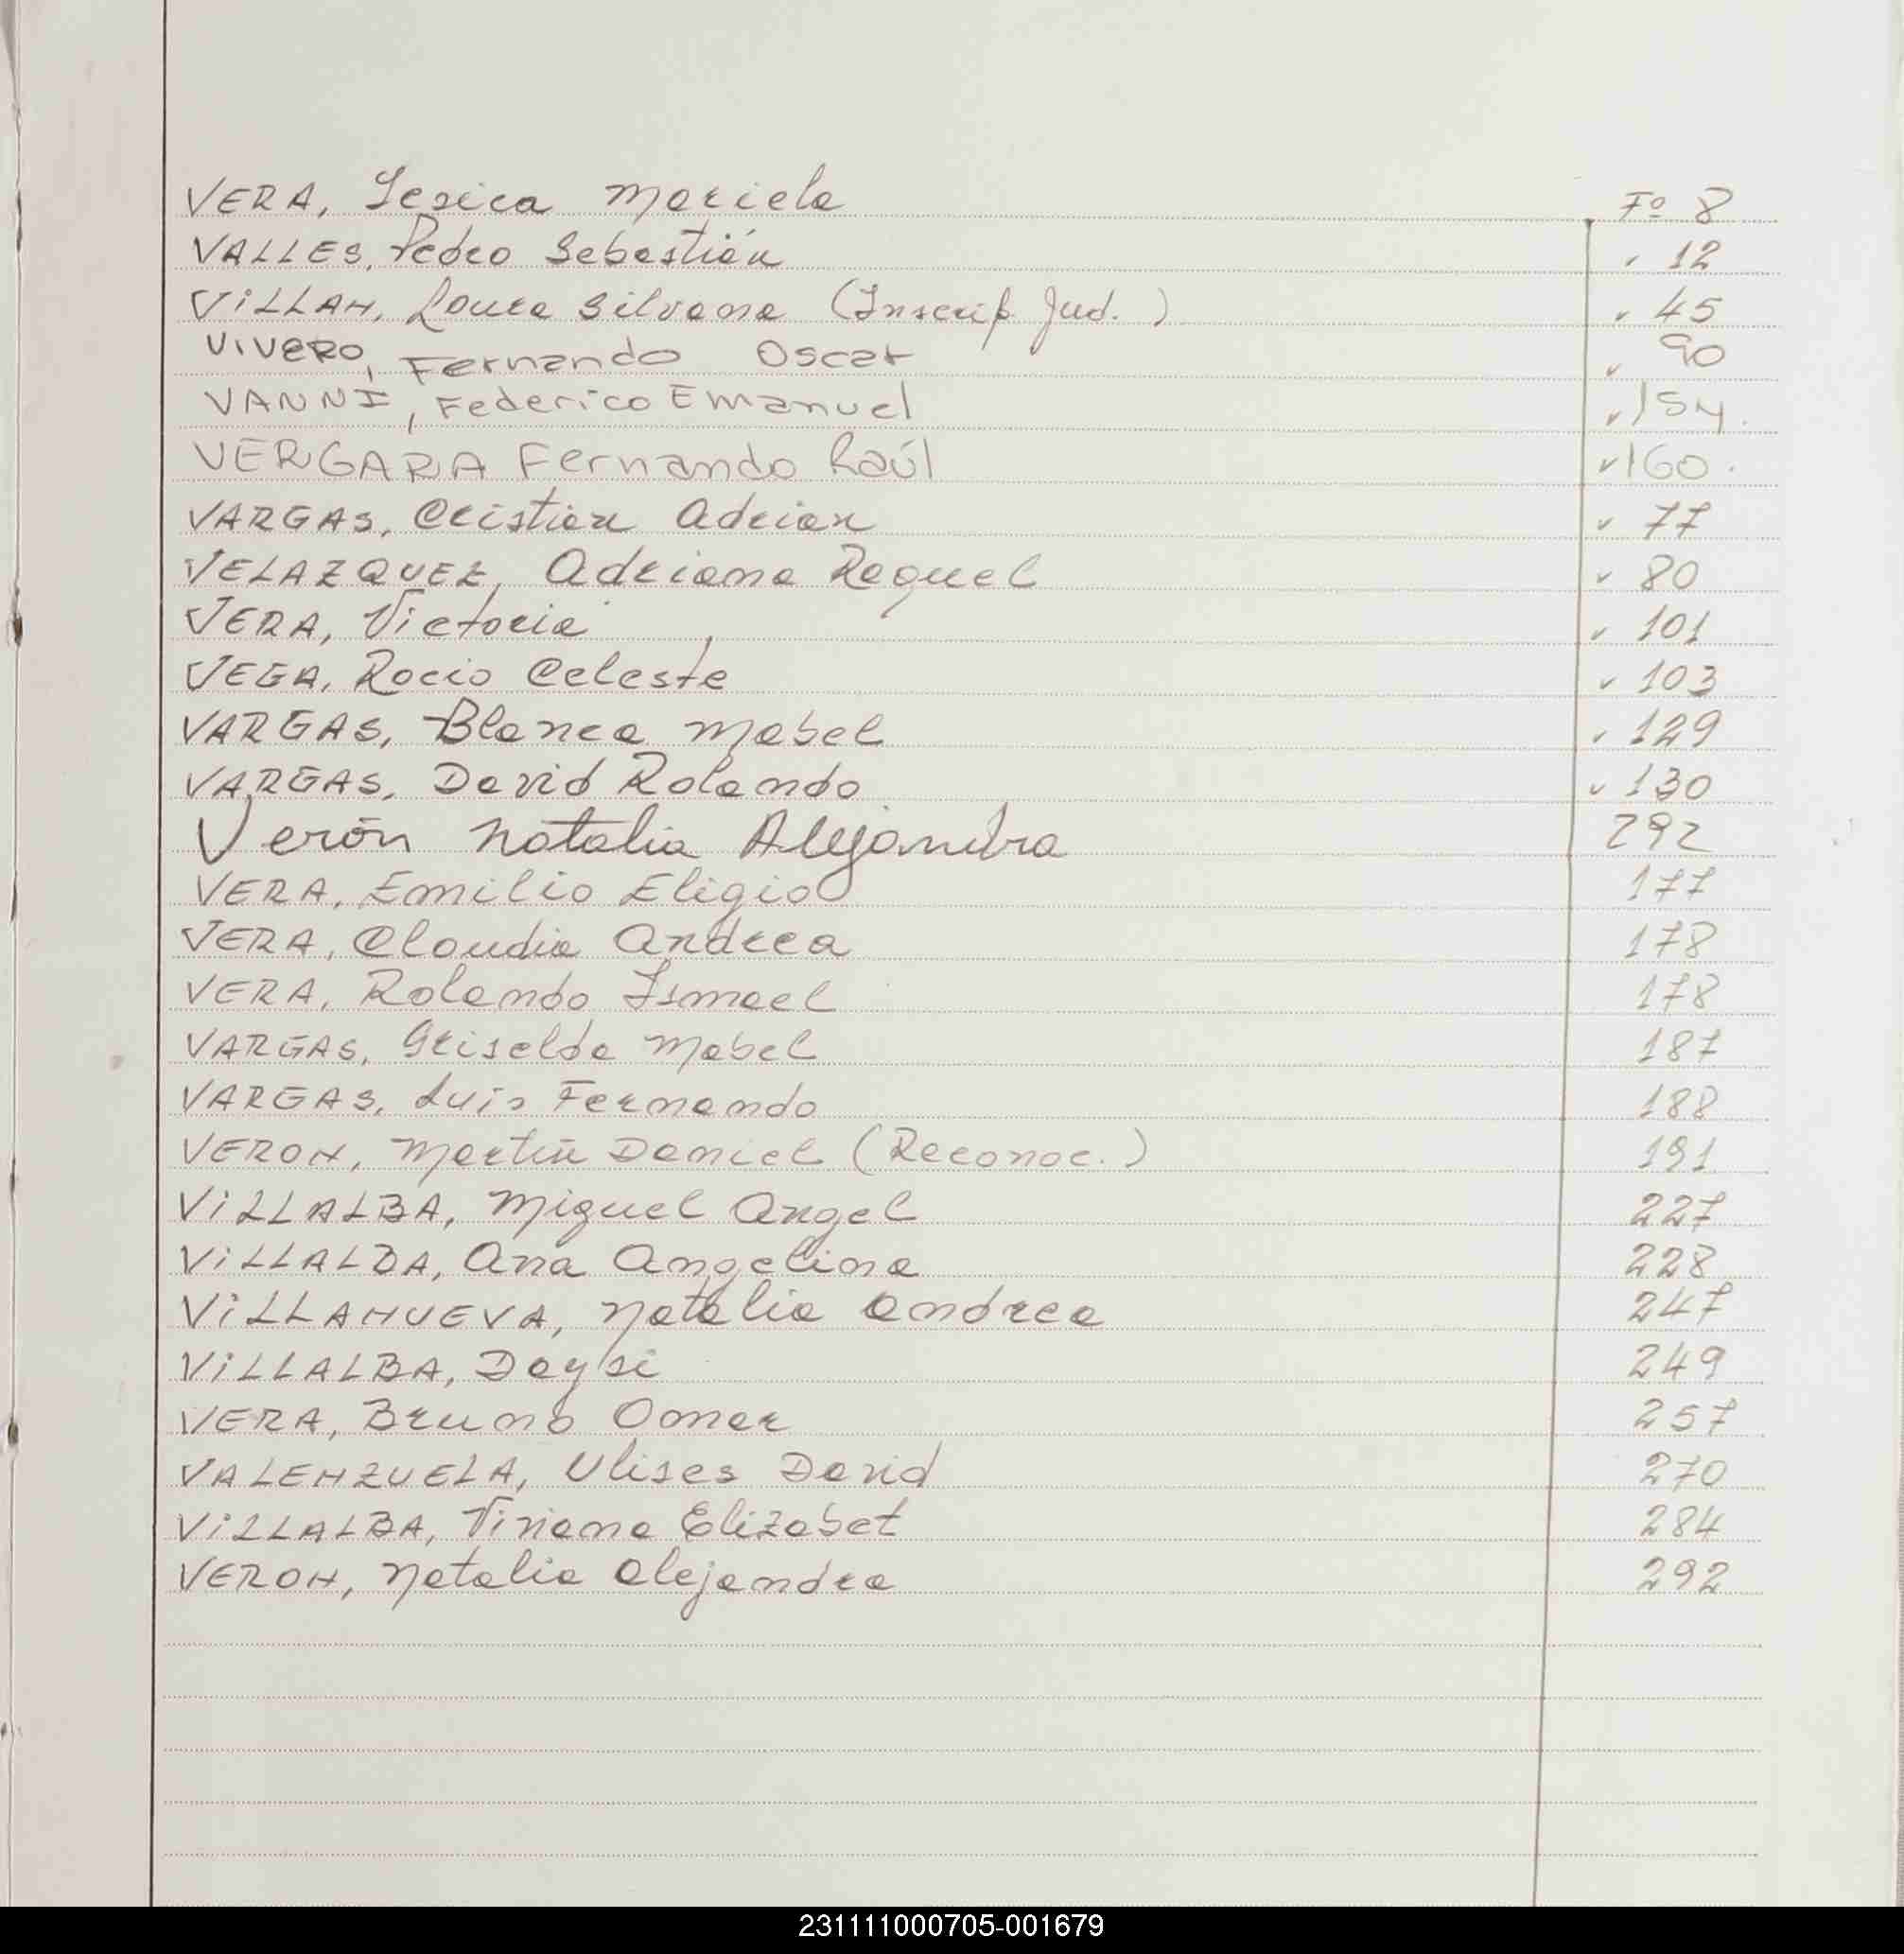 VERA, Yesica Mariela Fº 8
VALLES, Pedro Sebastián " 12
VILLAN, Laura Silvana (Inscrip. Jud.) " 45
VIVERO, Fernando Oscar " 90
VANNI, Federico Emanuel " 154.
VERGARA Fernando Raúl " 160.
VARGAS, Cristian Adrian " 77
VELAZQUEZ, Adriana Raquel " 80
VERA, Victoria " 101
VEGA, Rocio Celeste " 103
VARGAS, Blanca Mabel " 129
VARGAS, David Rolando " 130
Verón Natalia Alejandra 292
VERA, Emilio Eligio 177
VERA, Claudia Andrea 178
VERA, Rolando Ismael 178
VARGAS, Griselda Mabel 187
VARGAS, Luis Fernando 188
VERON, Martín Daniel (Reconoc.) 191
VILLALBA, Miguel Angel 227
VILLALBA, Ana Angelina 228
VILLANUEVA, Natalia Andrea 247
VILLALBA, Daysi 249
VERA, Bruno Omar 257
VALENZUELA, Ulises David 270
VILLALBA, Viviana Elizabet 284
VERON, Natalia Alejandra 292
231111000705-001679